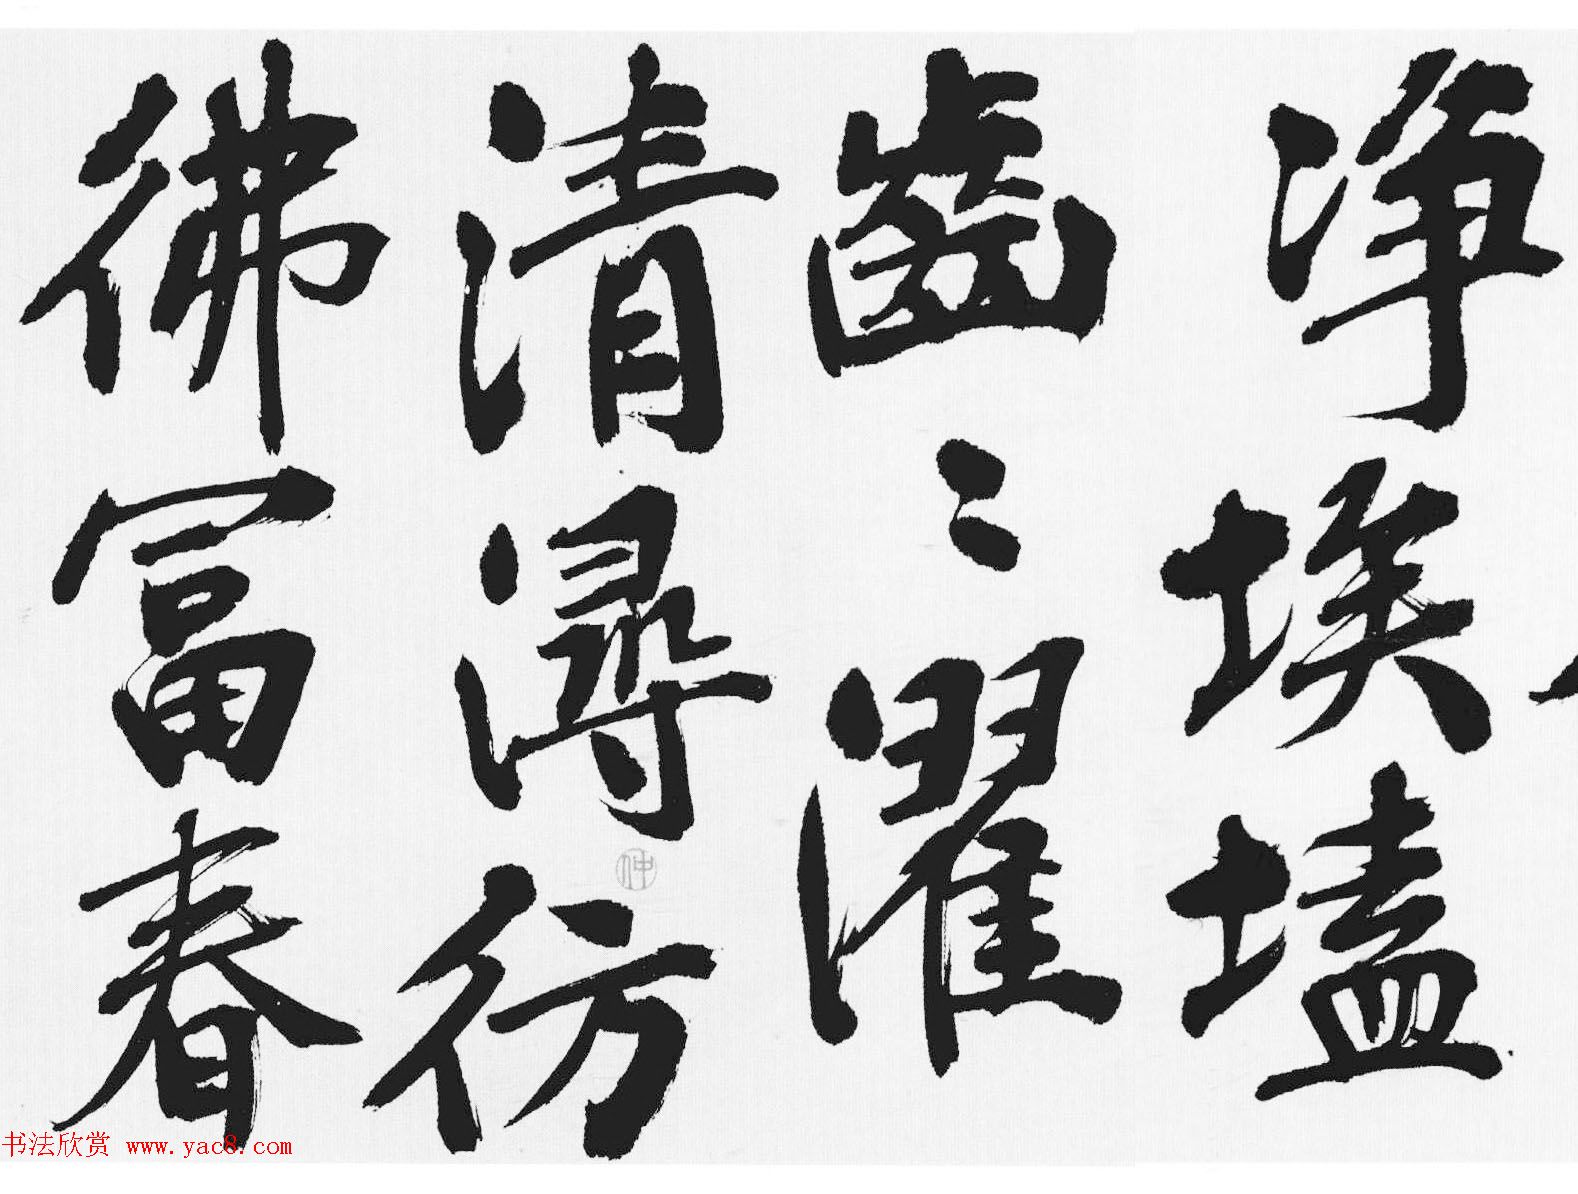 净埃壒
齒〻濯
清潯彷
彿冨春
书法欣赏 www.yac8.com